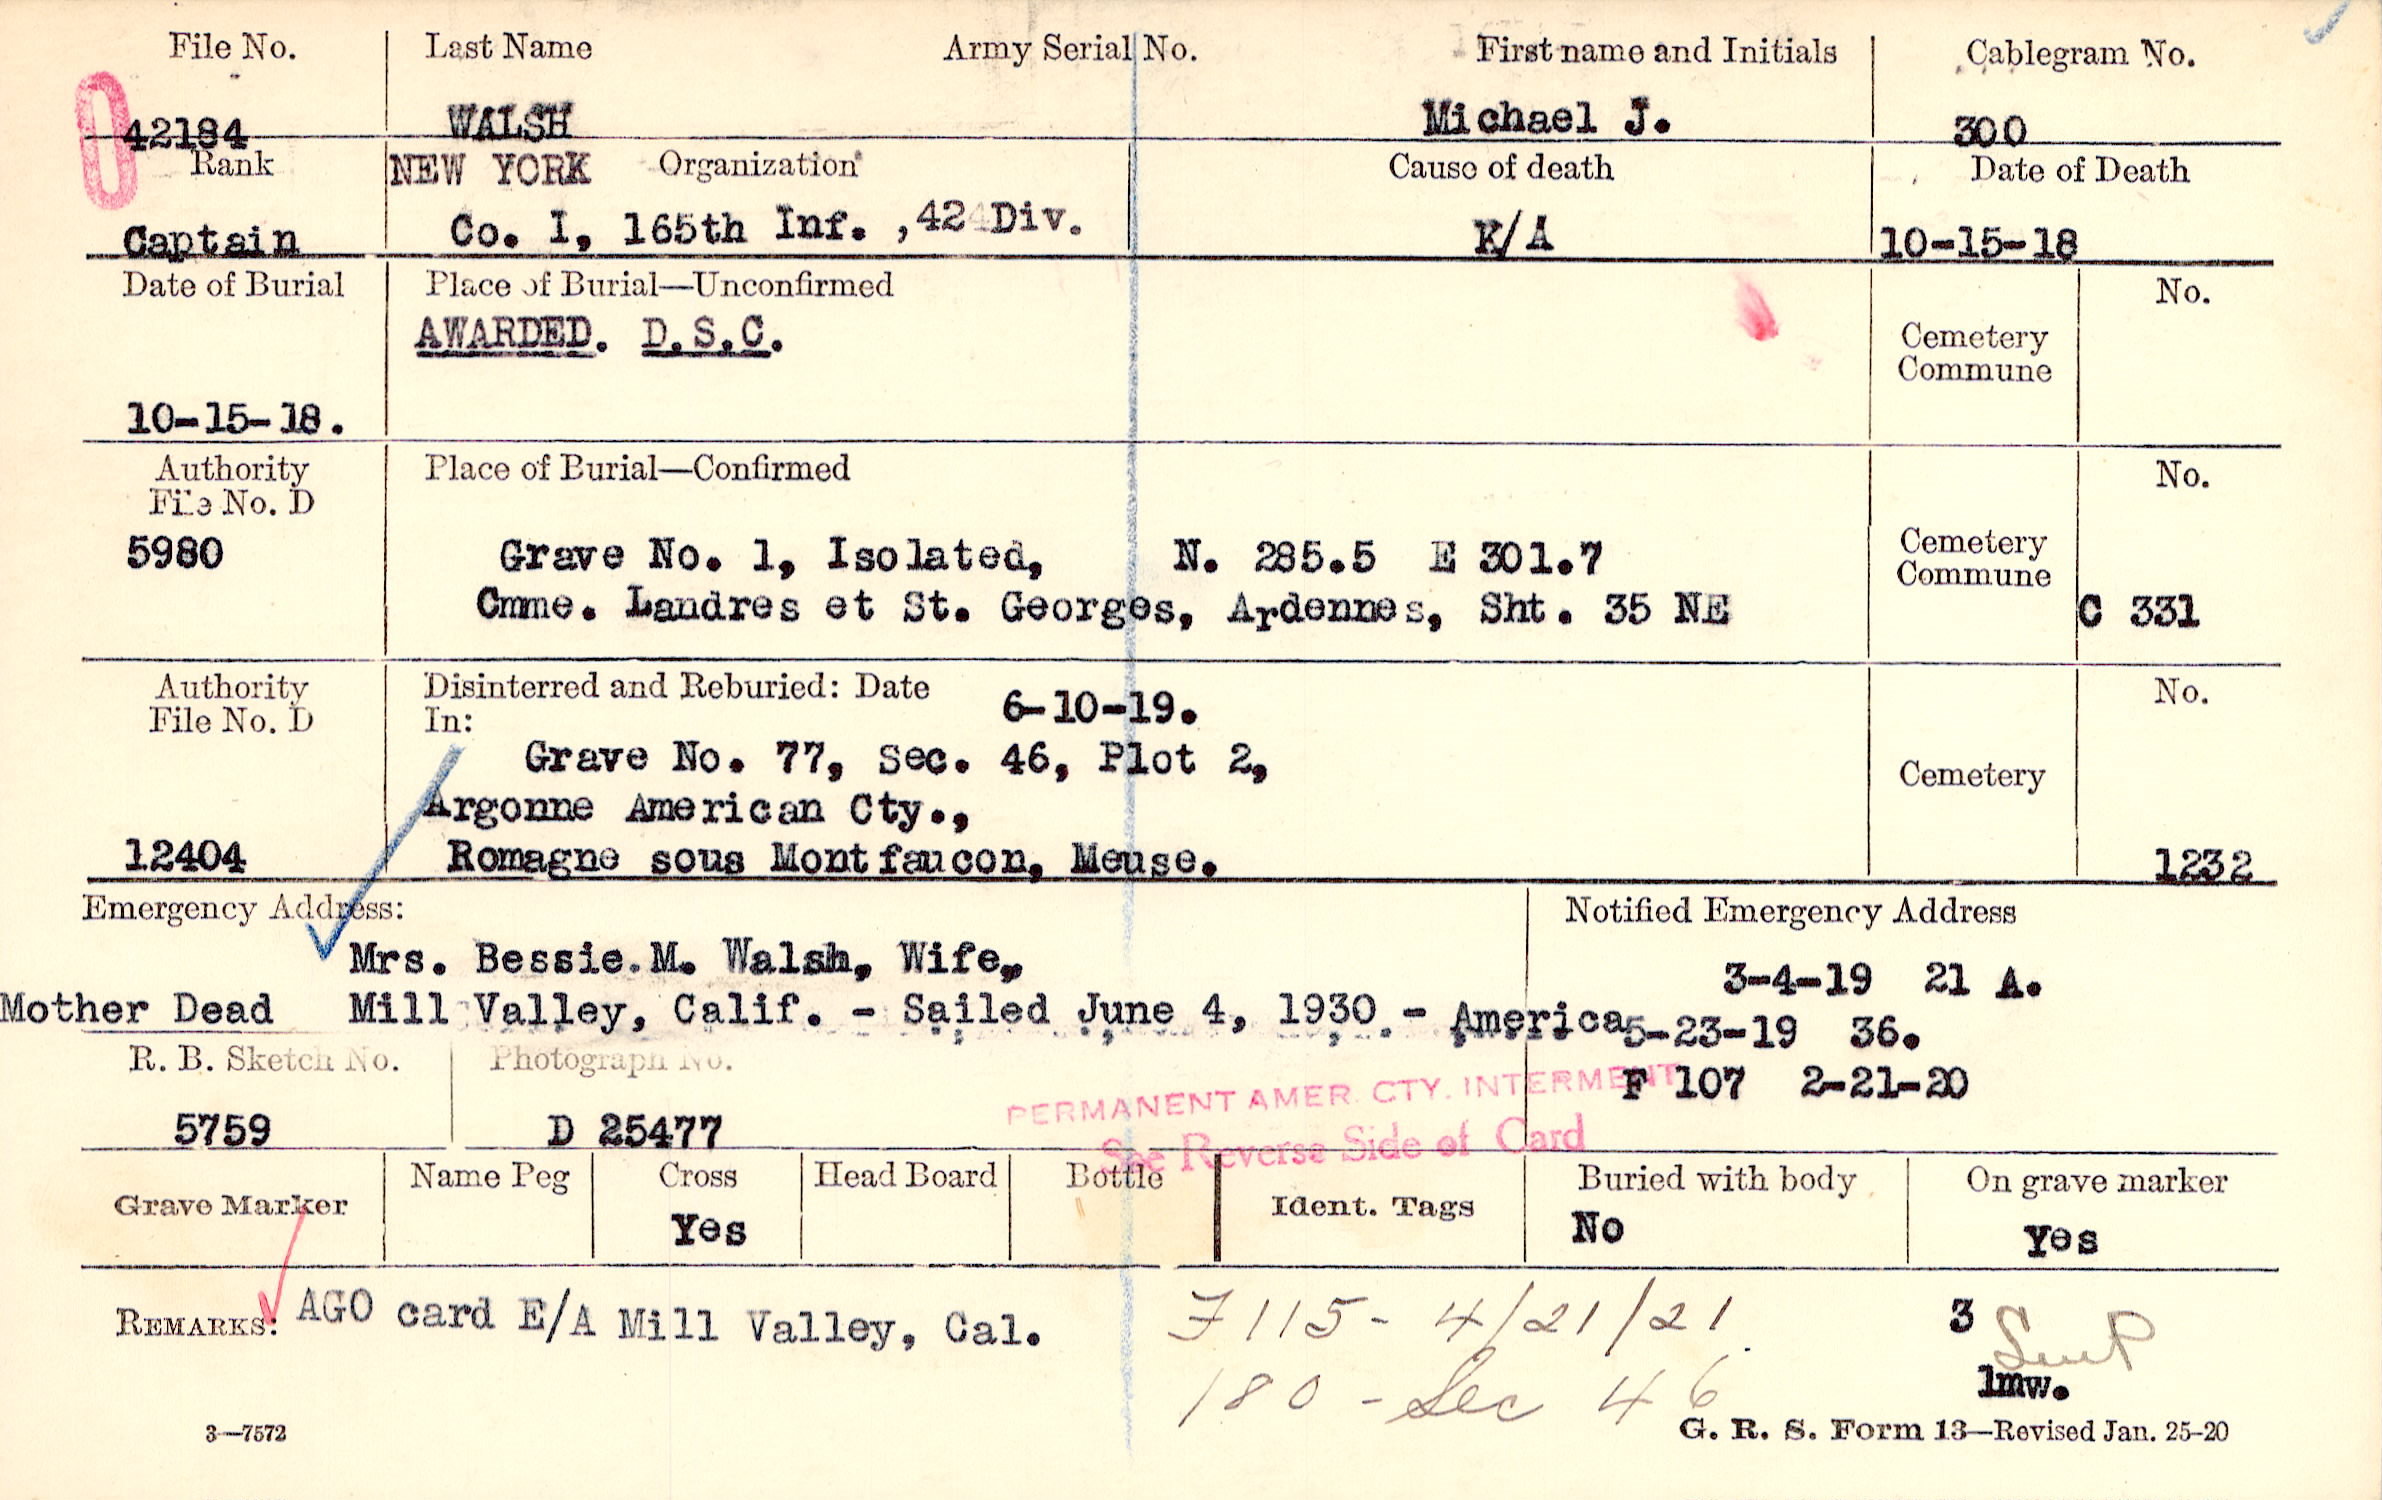 File No. Last Name Army Serial No. First name and Initials Cablegram No.
42184 WALSH Michael J. 300
Rank NEW YORK Organization Cause of death Date of Death
Captain Co. I, 165th Inf. ,42 Div. K/A 10-15-18
Date of Burial Place of Burial—Unconfirmed No.
AWARDED. D.S.C.
Cemetery
Commune
10-15-18.
Authority Place of Burial—Confirmed No.
File No. D
5980 Grave No. 1, Isolated, N. 285.5 E 301.7
Cemetery
Commune
Cmme. Landres et St. Georges, Ardennes, Sht. 35 NE C 331
Authority Disinterred and Reburied: Date 6-10-19. No.
File No. D In:
Grave No. 77, Sec. 46, Plot 2,
Cemetery
Argonne American Cty.,
12404 Romagne sous Montfaucon, Meuse. 1232
Emergency Address: Notified Emergency Address
Mrs. Bessie.M. Walsh, Wife, 3-4-19 21 A.
Mother Dead Mill Valley, Calif. - Sailed June 4, 1930 - America 5-23-19 36.
R. B. Sketch No. Photograph No.
F 107 2-21-20
PERMANENT AMER. CTY. INTERMENT
5759 D 25477
See Reverse Side of Card
Grave Marker Name Peg Cross Head Board Bottle Ident. Tags Buried with body On grave marker
Yes No Yes
REMARKS: AGO card E/A Mill Valley, Cal. F115- 4/21/21. 3
180 - Sec 46
lmw.
3—7572 G. R. S. Form 13—Revised Jan. 25-20